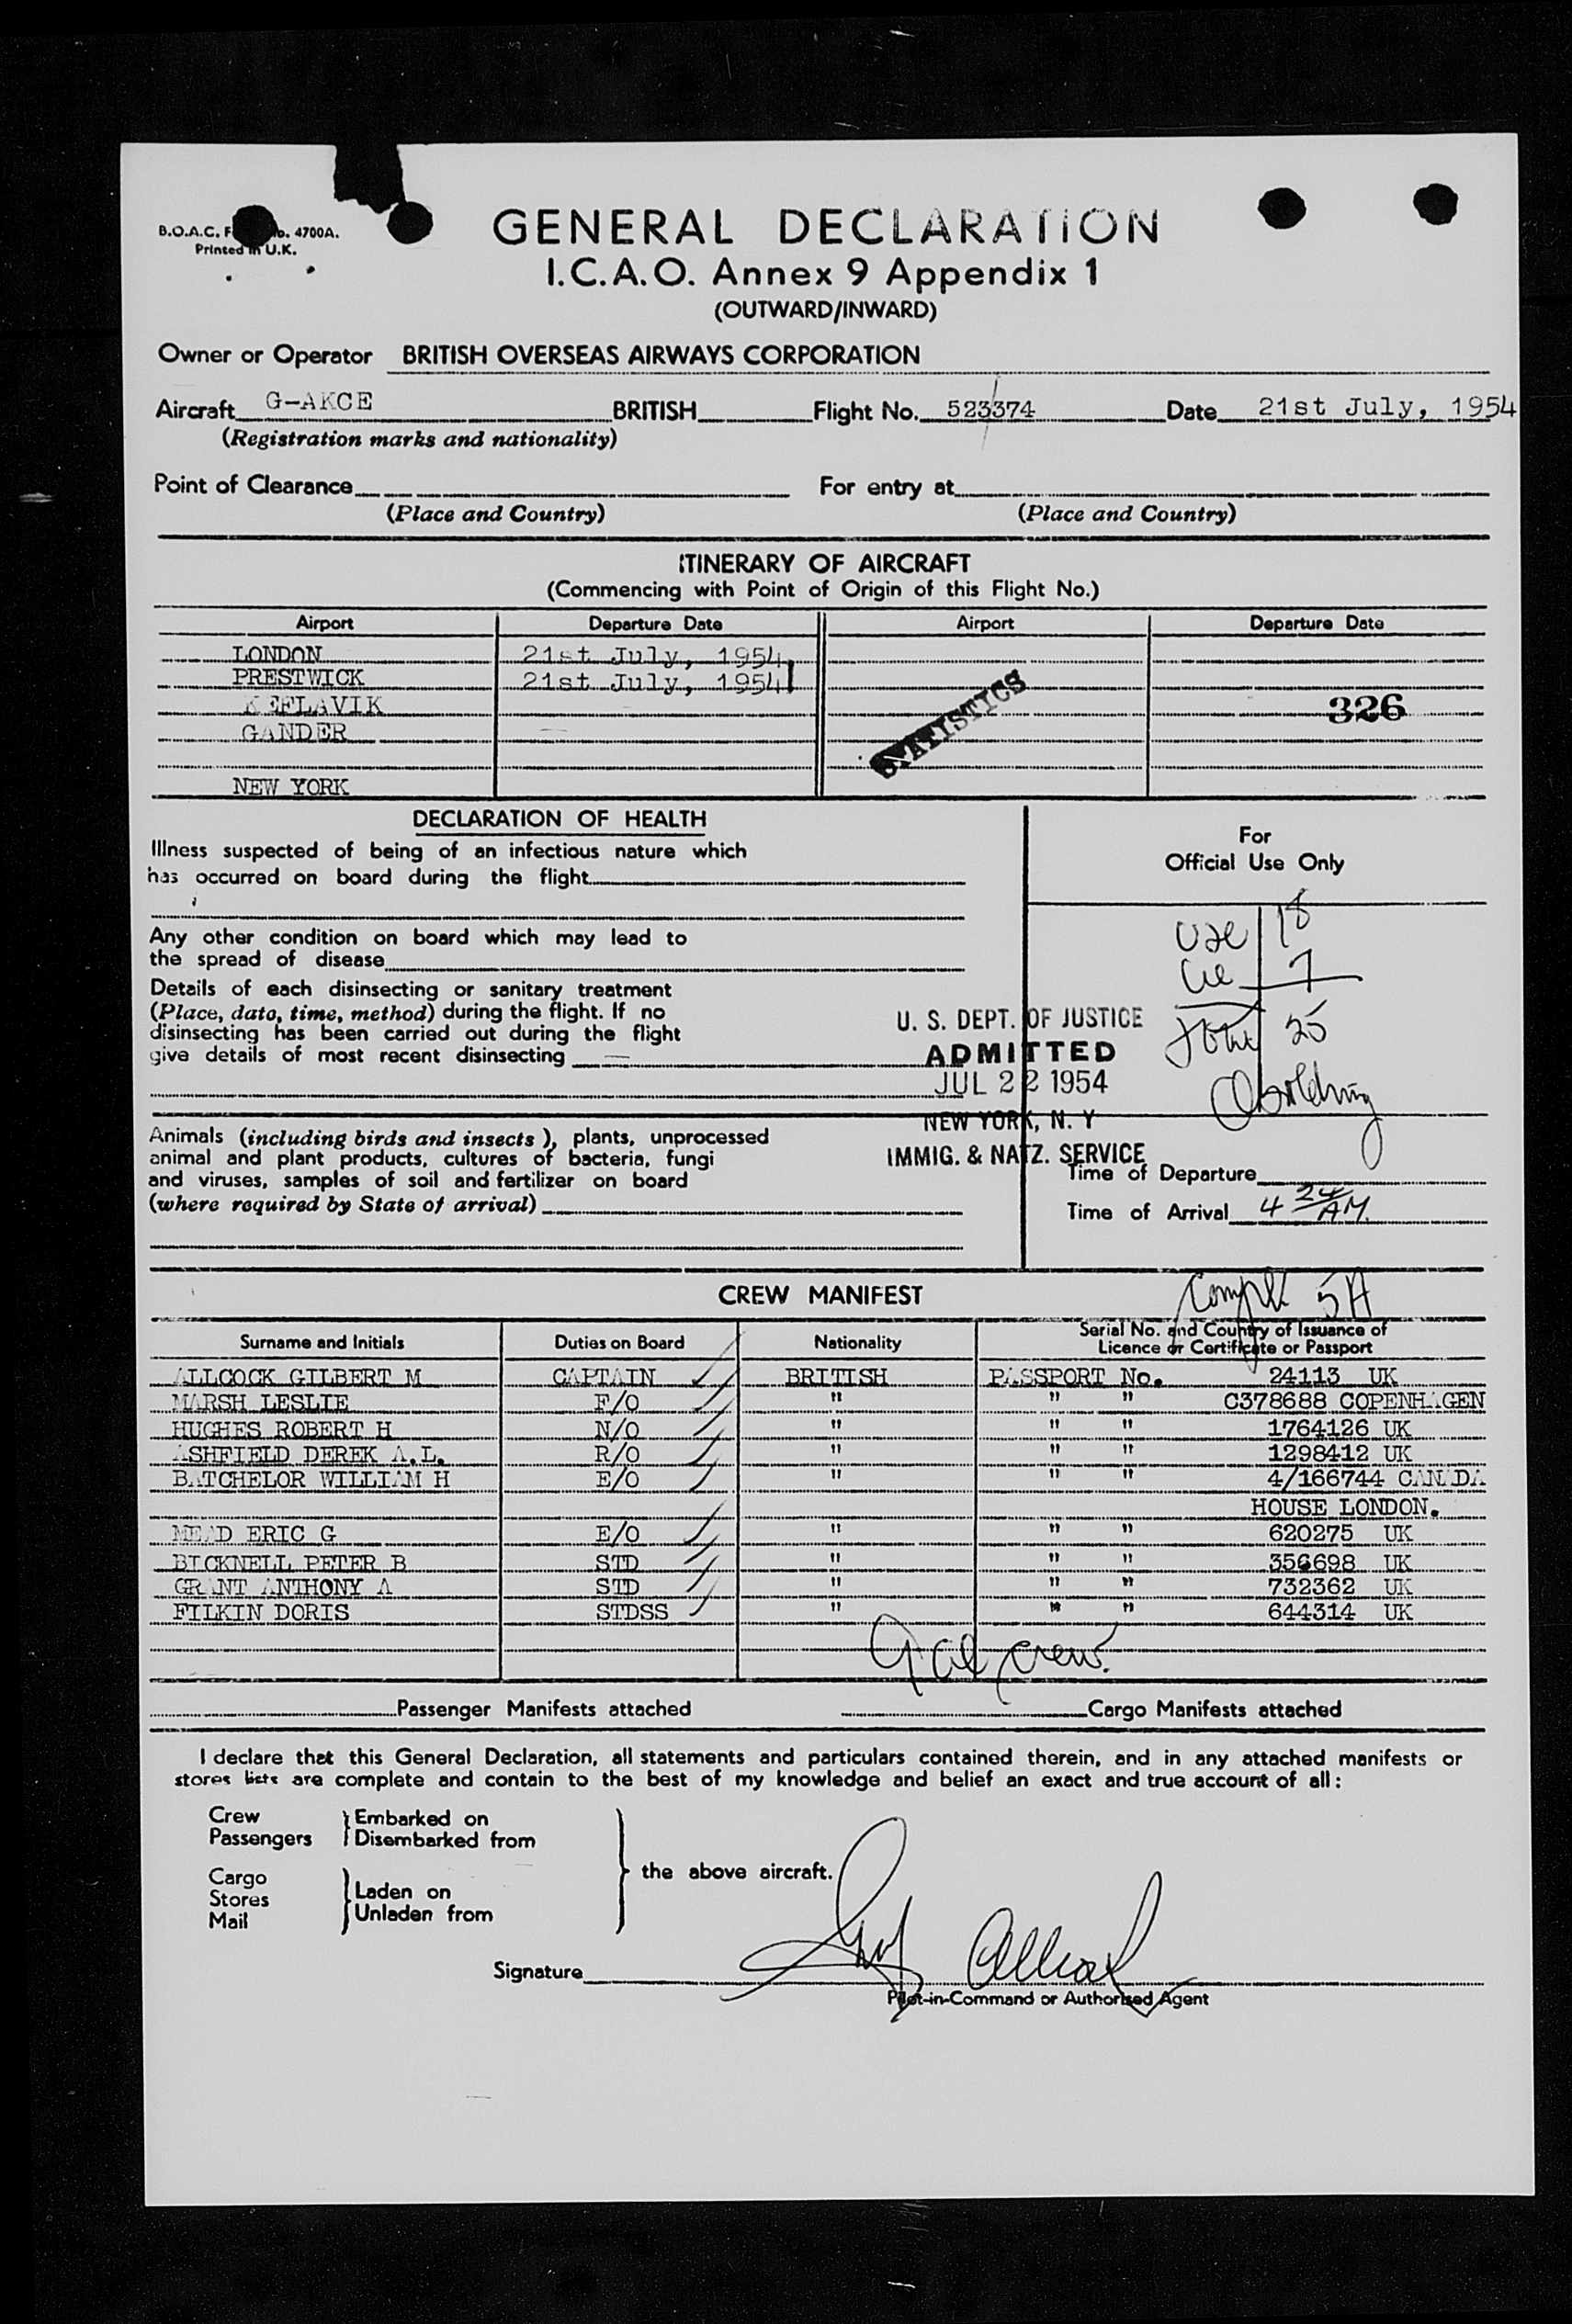 B.O.A.C. F o. 4700A.
Printed in U.K.
GENERAL DECLARATION
I.C.A.O. Annex 9 Appendix 1
(OUTWARD/INWARD)
Owner or Operator BRITISH OVERSEAS AIRWAYS CORPORATION
Aircraft G-AKCE BRITISH Flight No. 523374 Date 21st July, 1954
(Registration marks and nationality)
Point of Clearance For entry at
(Place and Country) (Place and Country)
ITINERARY OF AIRCRAFT
(Commencing with Point of Origin of this Flight No.)
Airport Departure Date Airport Departure Date
LONDON 21st July, 1954
PRESTWICK 21st July, 1954
KEFLAVIK
GANDER
NEW YORK
STATISTICS
326
DECLARATION OF HEALTH
Illness suspected of being of an infectious nature which
has occurred on board during the flight
Any other condition on board which may lead to
the spread of disease
Details of each disinsecting or sanitary treatment
(Place, date, time, method) during the flight. If no
disinsecting has been carried out during the flight
give details of most recent disinsecting
For
Official Use Only
18
7
25
U. S. DEPT. OF JUSTICE
ADMITTED
JUL 22 1954
NEW YORK, N. Y
IMMIG. & NATZ. SERVICE
Animals (including birds and insects), plants, unprocessed
animal and plant products, cultures of bacteria, fungi
and viruses, samples of soil and fertilizer on board
(where required by State of arrival)
Time of Departure
Time of Arrival 4 24 AM.
CREW MANIFEST
Surname and Initials Duties on Board Nationality Serial No. and Country of Issuance of
Licence or Certificate or Passport
ALLCOCK GILBERT M CAPTAIN BRITISH PASSPORT No. 24113 UK
MARSH LESLIE F/O " " " C378688 COPENHAGEN
HUGHES ROBERT H N/O " " " 1764126 UK
ASHFIELD DEREK A.L. R/O " " " 1298412 UK
BATCHELOR WILLIAM H E/O " " " 4/166744 CANADA
HOUSE LONDON.
MEAD ERIC G E/O " " " 620275 UK
BICKNELL PETER B STD " " " 356698 UK
GRANT ANTHONY A STD " " " 732362 UK
FILKIN DORIS STDSS " " " 644314 UK
9 crew.
Passenger Manifests attached Cargo Manifests attached
I declare that this General Declaration, all statements and particulars contained therein, and in any attached manifests or
stores lists are complete and contain to the best of my knowledge and belief an exact and true account of all:
Crew Embarked on
Passengers Disembarked from
the above aircraft.
Cargo
Stores Laden on
Mail Unladen from
Signature
Pilot-in-Command or Authorised Agent